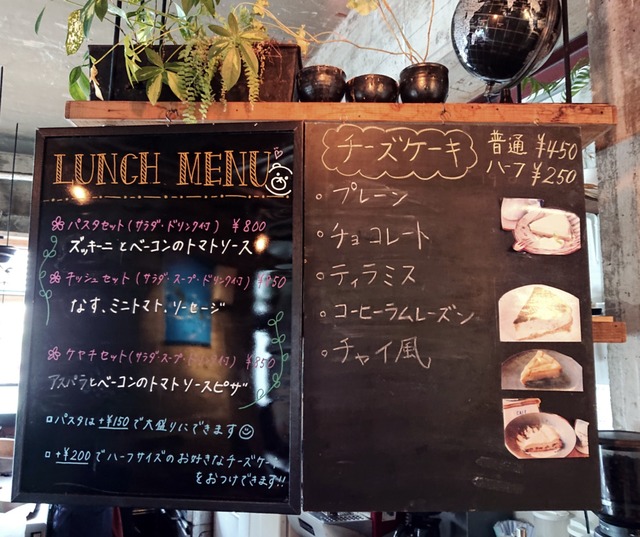 LUNCH MENU
パスタセット(サラダ・ドリンク付) ¥800
ズッキーニとベーコンのトマトソース
キッシュセット(サラダ・スープ・ドリンク付)
なす、ミニトマト、ソーセージ
ケヤチセット(サラダ・スープ・ドリンク付) ¥850
アスパラとベーコンのトマトソースピザ
パスタは+¥150で大盛りにできます
+¥200でハーフサイズのお好きなチーズケーキ
をおつけできます!!
チーズケーキ
普通 ¥450
ハーフ ¥250
プレーン
チョコレート
ティラミス
コーヒーラムレーズン
チャイ風